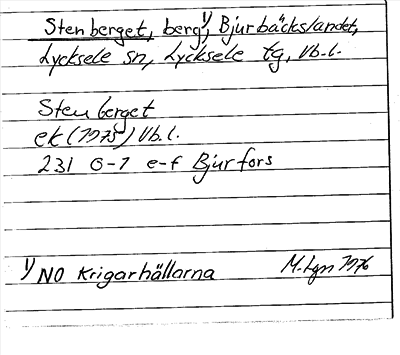 Stenberget, berg¹⁾, Bjurbäckslandet,
Lycksele sn, Lycksele tg, Vb.l.
Stenberget
ek (1975) Vb.l.
231 G-7 e-f Bjurfors
¹⁾ NO Krigarhällarna M. Lgn 1976